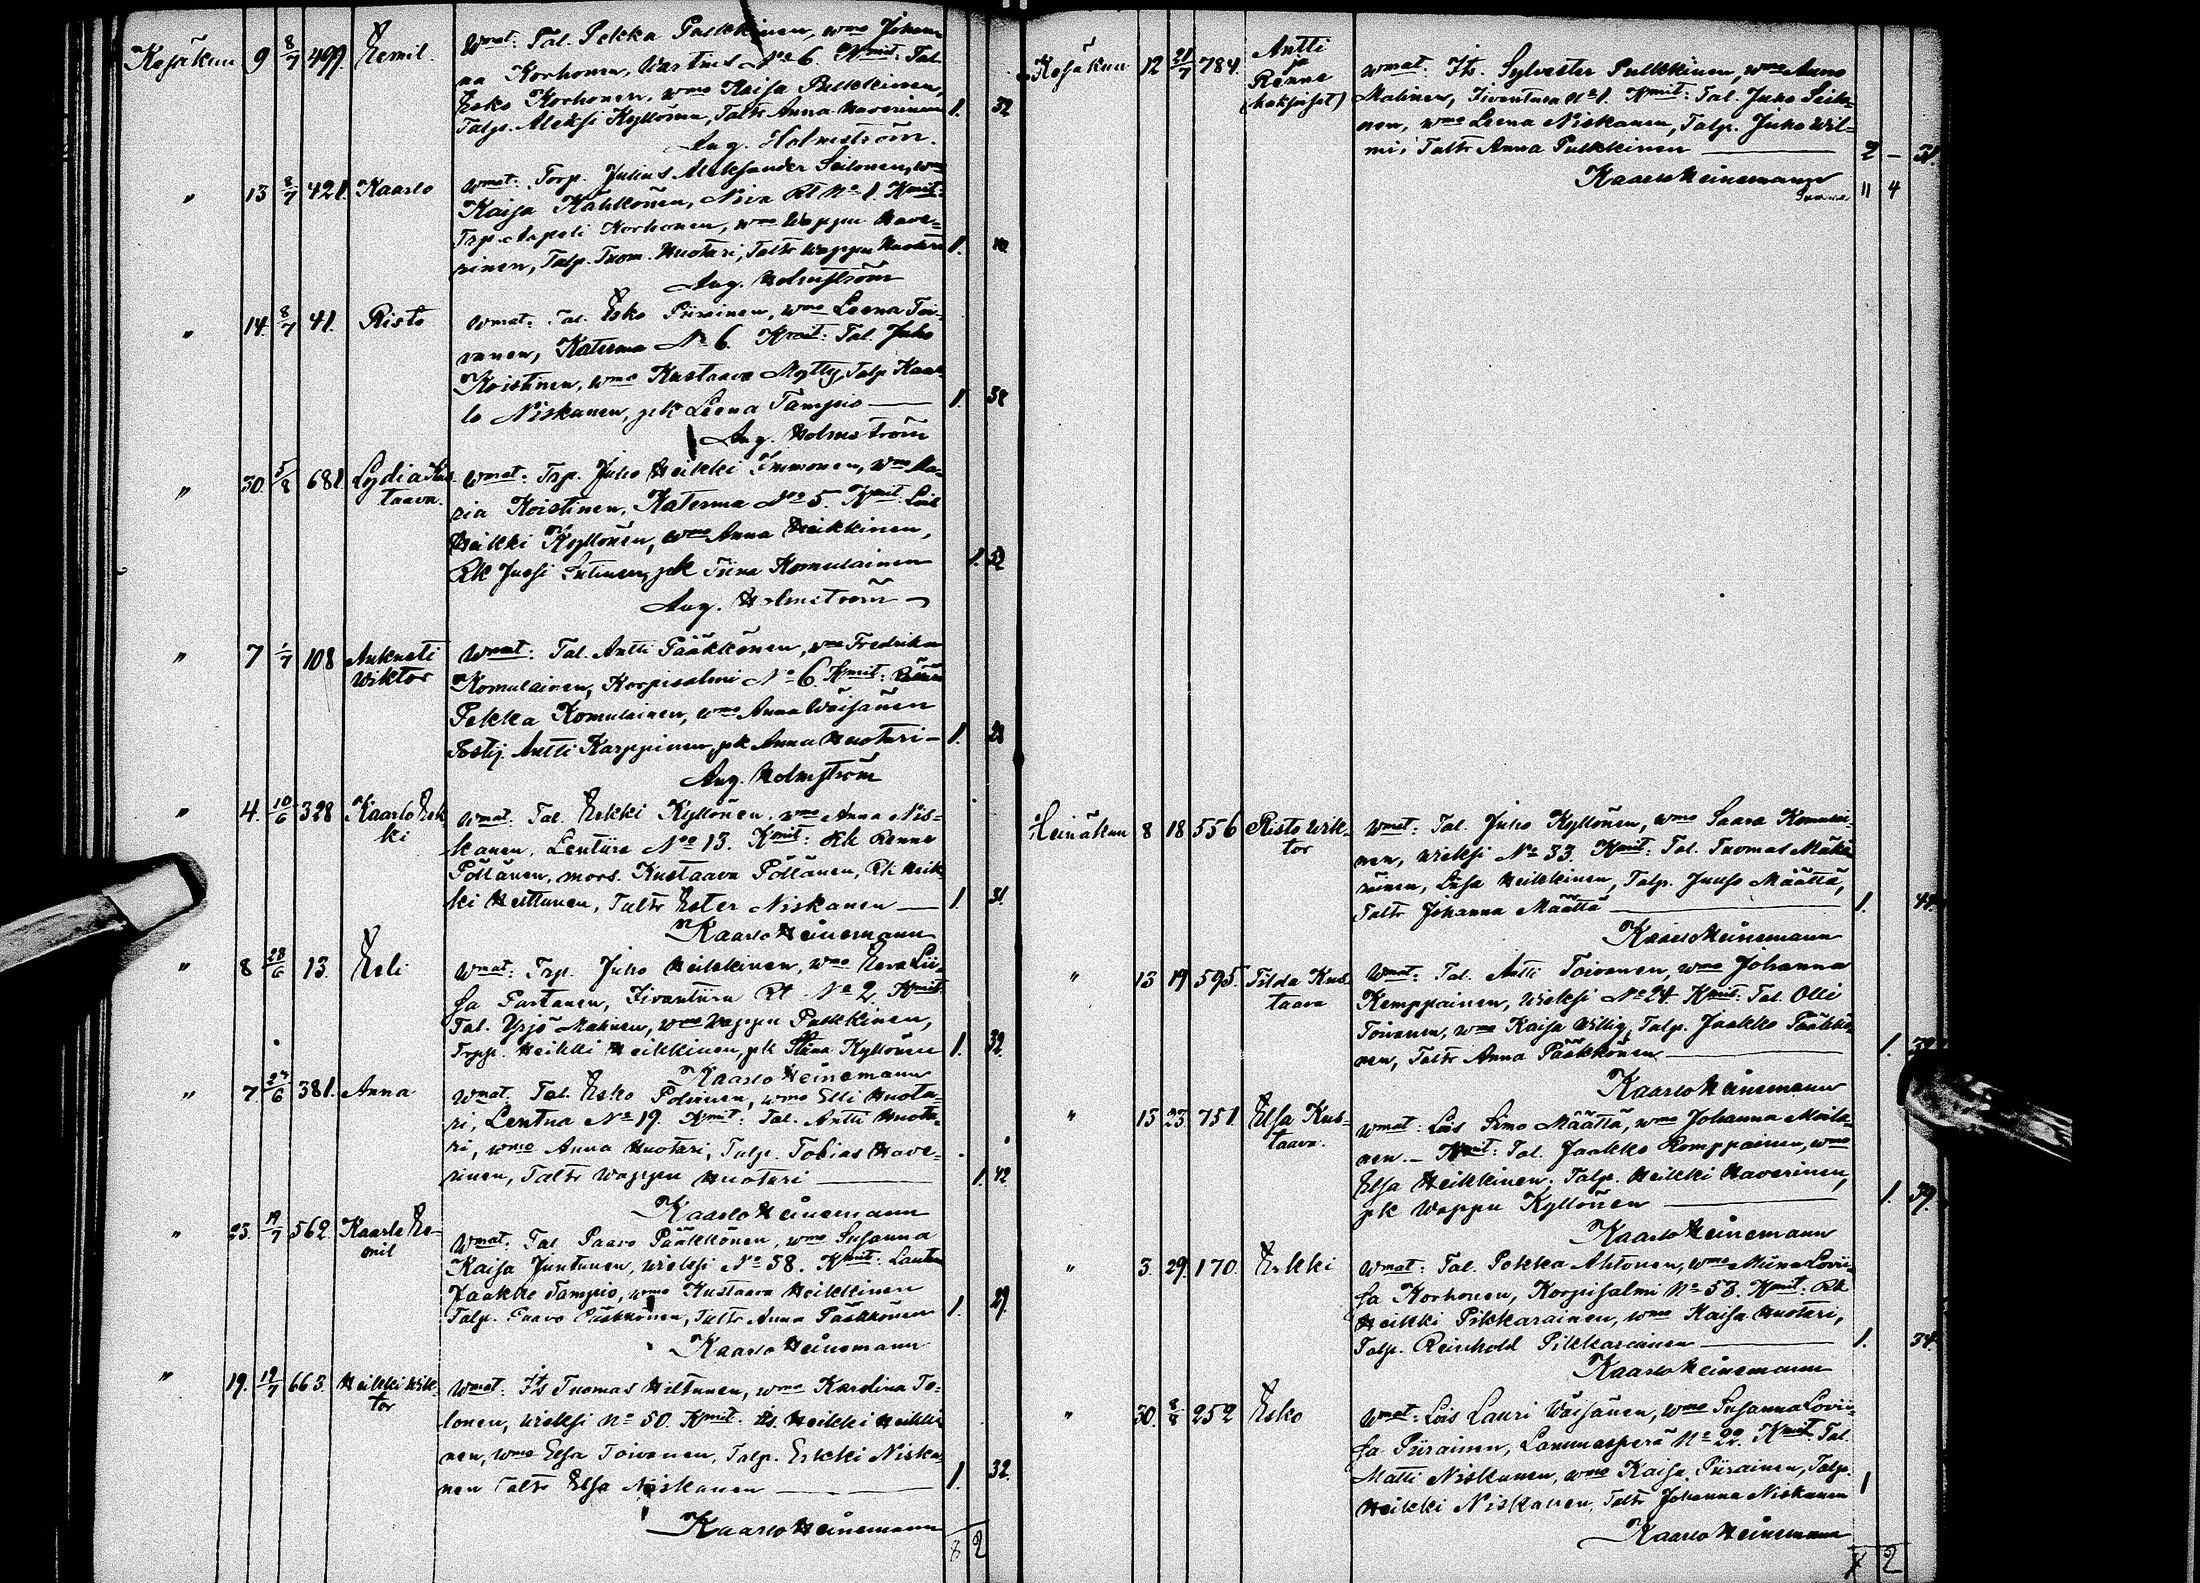 Kesäkuu 9 8/7 499. Eemil. Wmat: Tal. Pekka Pulkkinen, wmo Johan-
na Korhonen, Wartius No 6. Kmit: Tal.
Esko Korhonen, wmo Kaisa Pulkkinen,
Talp. Aleksi Kyllönen, Taltr Anna Haverinen 1. 32
Aug. Holmström.
" 13 8/7 421. Kaarlo Wmat: Torp. Julius Aleksander Seilonen, wmo
Kaisa Kähkönen, Niva Rt No 1. Kmit:
Trp. Aapeli Korhonen, wmo Wappu Have-
rinen, Talp. Tuom. Huotari, Taltr Wappu Huotari 1.
Aug. Holmström
" 14. 8/7 41. Risto Wmat: Tal. Esko Piirainen, wmo Leena Toi-
vanen, Katerma No 6. Kmit: Tal. Juho
Koistinen, wmo Kustaava Mytty, Talp. Kaar-
lo Niskanen, pk Leena Tampio 1. 38
Aug. Holmström
" 30. 5/8 681. Lydia Kus-
taava. Wmat: Trp. Juho Heikki Immonen, wmo Ma-
ria Koistinen, Katerma No 5. Kmit: Lois
Heikki Kyllönen, wmo Anna Heikkinen,
Rk Jussi Sutinen, pk Tiina Komulainen 1.
Aug. Holmström
" 7 1/7 108 Aukusti
Wiktor Wmat: Tal. Antti Pääkkönen, wmo Fredrika
Komulainen, Korpisalmi No 6. Kmit:
Pekka Komulainen, wmo Anna Wäisänen
Antti Karppinen, pk Anna Huotari 1. 28
Aug. Holmström
" 4. 10/6 328 Kaarlo Erk-
ki Wmat: Tal. Erkki Kyllönen, wmo Anna Nis-
kanen, Lentiira No 13. Kmit: Rk Renne
Pöllänen, mors. Kustaava Pöllänen, Rk Heik-
ki Heittunen, Taltr Ester Niskanen 1. 31.
Kaarlo Heinemann
" 8 28/6 13. Eeli Wmat: Trp. Juho Heikkinen, wmo Eeva Lii-
sa Partanen, Iivantiira Rt No 2. Kmit:
Tal. Yrjö Malinen, wmo Wappu Pulkkinen,
Trpp. Heikki Heikkinen, pk Stiina Kyllönen 1. 32.
Kaarlo Heinemann
" 7 27/6 381. Anna Wmat. Tal. Esko Polvinen, wmo Elli Huota-
ri, Lentua No 19. Kmit: Tal. Antti Huota-
ri, wmo Anna Huotari, Talp. Tobias Have-
rinen, Taltr Wappu Huotari 1. 42
Kaarlo Heinemann
" 23. 19/7 562 Kaarlo Ee-
mil Wmat: Tal. Paavo Pääkkönen, wmo Susanna
Kaisa Juntunen, Wieksi No 38. Kmit: Lautm
Jaakko Tampio, wmo Kustaava Heikkinen
Talp. Paavo Pääkkönen, Taltr Anna Pääkkönen 1. 29.
Kaarlo Heinemann
" 19. 19/7 663. Heikki Wik-
tor Wmat: Its. Tuomas Hiltunen, wmo Karolina To-
lonen, Wieksi No 50. Kmit: Its. Heikki Heikki-
nen, wmo Elsa Toivonen, Talp. Erkki Niska-
nen Taltr Elsa Niskanen 1. 32.
Kaarlo Heinemann
8 2
Kesäkuu 12 21/7 784. Antti
ja
Renne
(kaksoiset) Wmat: Its. Sylvester Pulkkinen, wmo Anna
Malinen, Iivantiira No 1. Kmit: Tal. Juho Seilo-
nen, wmo Leena Niskanen, Talp. Juho Wil-
mi, Taltr Anna Pulkkinen 2 –
Kaarlo Heinemann
Summa 11 4
Heinäkuu 8 18 556 Risto Wik-
tor Wmat: Tal. Juho Kyllönen, wmo Saara Komulai-
nen, Wieksi No 33. Kmit: Tal. Tuomas Mäkä-
räinen, Liisa Heikkinen, Talp. Juuso Määttä,
Taltr Johanna Määttä 1.
Kaarlo Heinemann
" 13 19 595. Tilda Kus-
taava Wmat: Tal. Antti Toivonen, wmo Johanna
Kemppainen, Wieksi No 24. Kmit: Tal. Olli
Toivonen, wmo Kaisa Willig, Talp. Jaakko Pääkkö-
nen, Taltr Anna Pääkkönen 1.
Kaarlo Heinemann
" 15 23 751. Elsa Kus-
taava. Wmat: Lois Simo Määttä, wmo Johanna Moila-
nen. – Kmit: Tal. Jaakko Romppainen, wmo
Elsa Heikkinen, Talp. Heikki Haverinen,
pk Wappu Kyllönen 1. 39.
Kaarlo Heinemann
" 3. 29. 170. Erkki Wmat: Tal. Pekka Ahtonen, wmo Miina Lovii-
sa Korhonen, Korpisalmi No 53. Kmit: Rk
Heikki Pikkarainen, wmo Kaisa Huotari,
Talp. Reinhold Pikkarainen 1. 34.
Kaarlo Heinemann
" 30. 8/8 252 Esko Wmat: Lois Lauri Wäisänen, wmo Susanna Lovii-
sa Piirainen, Lammasperä No 22. Kmit: Tal.
Matti Niskanen, wmo Kaisa Piirainen, Talp.
Heikki Niskanen, Taltr Johanna Niskanen 1
Kaarlo Heinemann
2